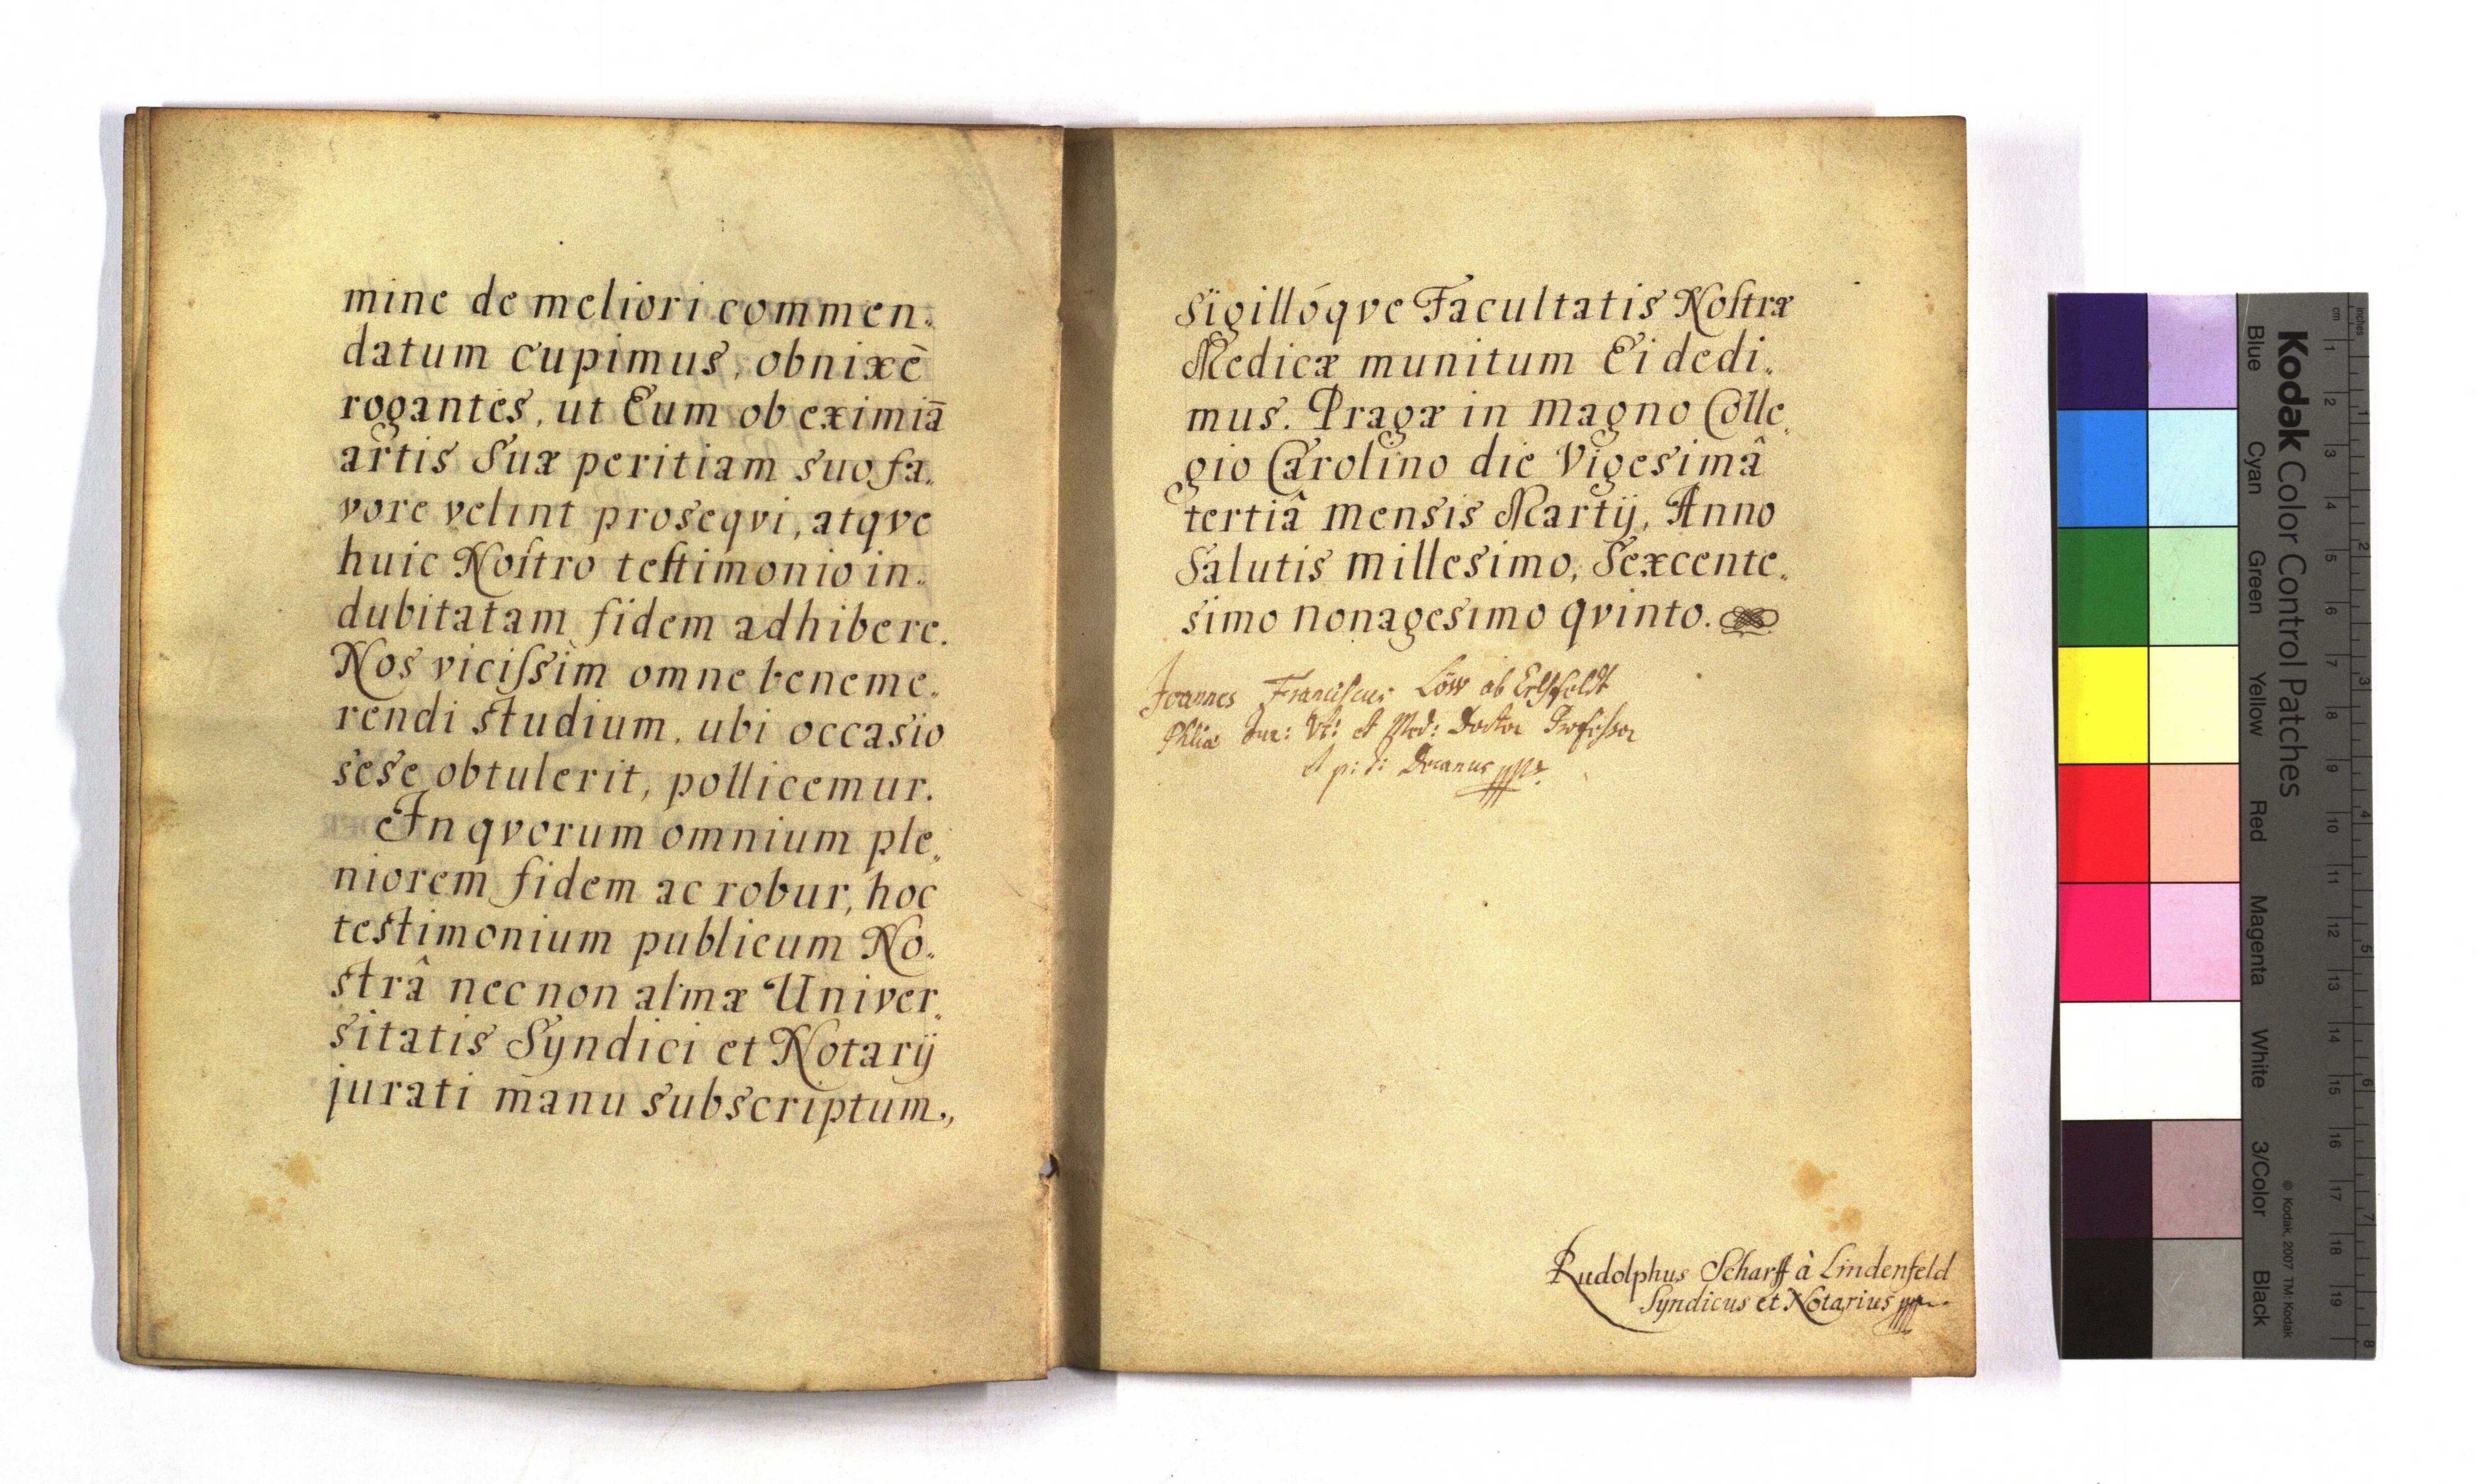 mine de meliori commen„
datum cupimus, obnixè
rogantes, ut Eum ob eximiā
artis Suæ peritiam suo fa„
vore velint proseqvi, atqve
huic Noſtro teſtimonio in„
dubitatam fidem adhibere.
Nos viciſsim omne beneme„
rendi studium, ubi occasio
sese obtulerit, pollicemur.
In qvorum omnium ple„
niorem fidem ac robur, hoc
testimonium publicum No„
strâ nec non almæ Univer„
sitatis Syndici et Notarij
jurati manu subscriptum„
sigillóqve Facultatis Noſtræ
Medicæ munitum Ei dedi„
mus. Pragæ in magno Colle„
gio Carolino die Vigesimâ
tertiâ mensis Martij, Anno
Salutis millesimo, Sexcente„
simo nonagesimo qvinto.
Joannes Franciſcus Löw ab Erlsfeldt
Phliæ Jur: Vt: et Med: Doctor Profeſsor
et p: t: Decanus mp.
Rudolphus Scharff à Lindenfeld
Syndicus et Notarius mp.
Kodak Color Control Patches
Blue Cyan Green Yellow Red Magenta White 3/Color Black
© Kodak, 2007 TM: Kodak
inches 1 2 3 4 5 6 7 8
cm 1 2 3 4 5 6 7 8 9 10 11 12 13 14 15 16 17 18 19